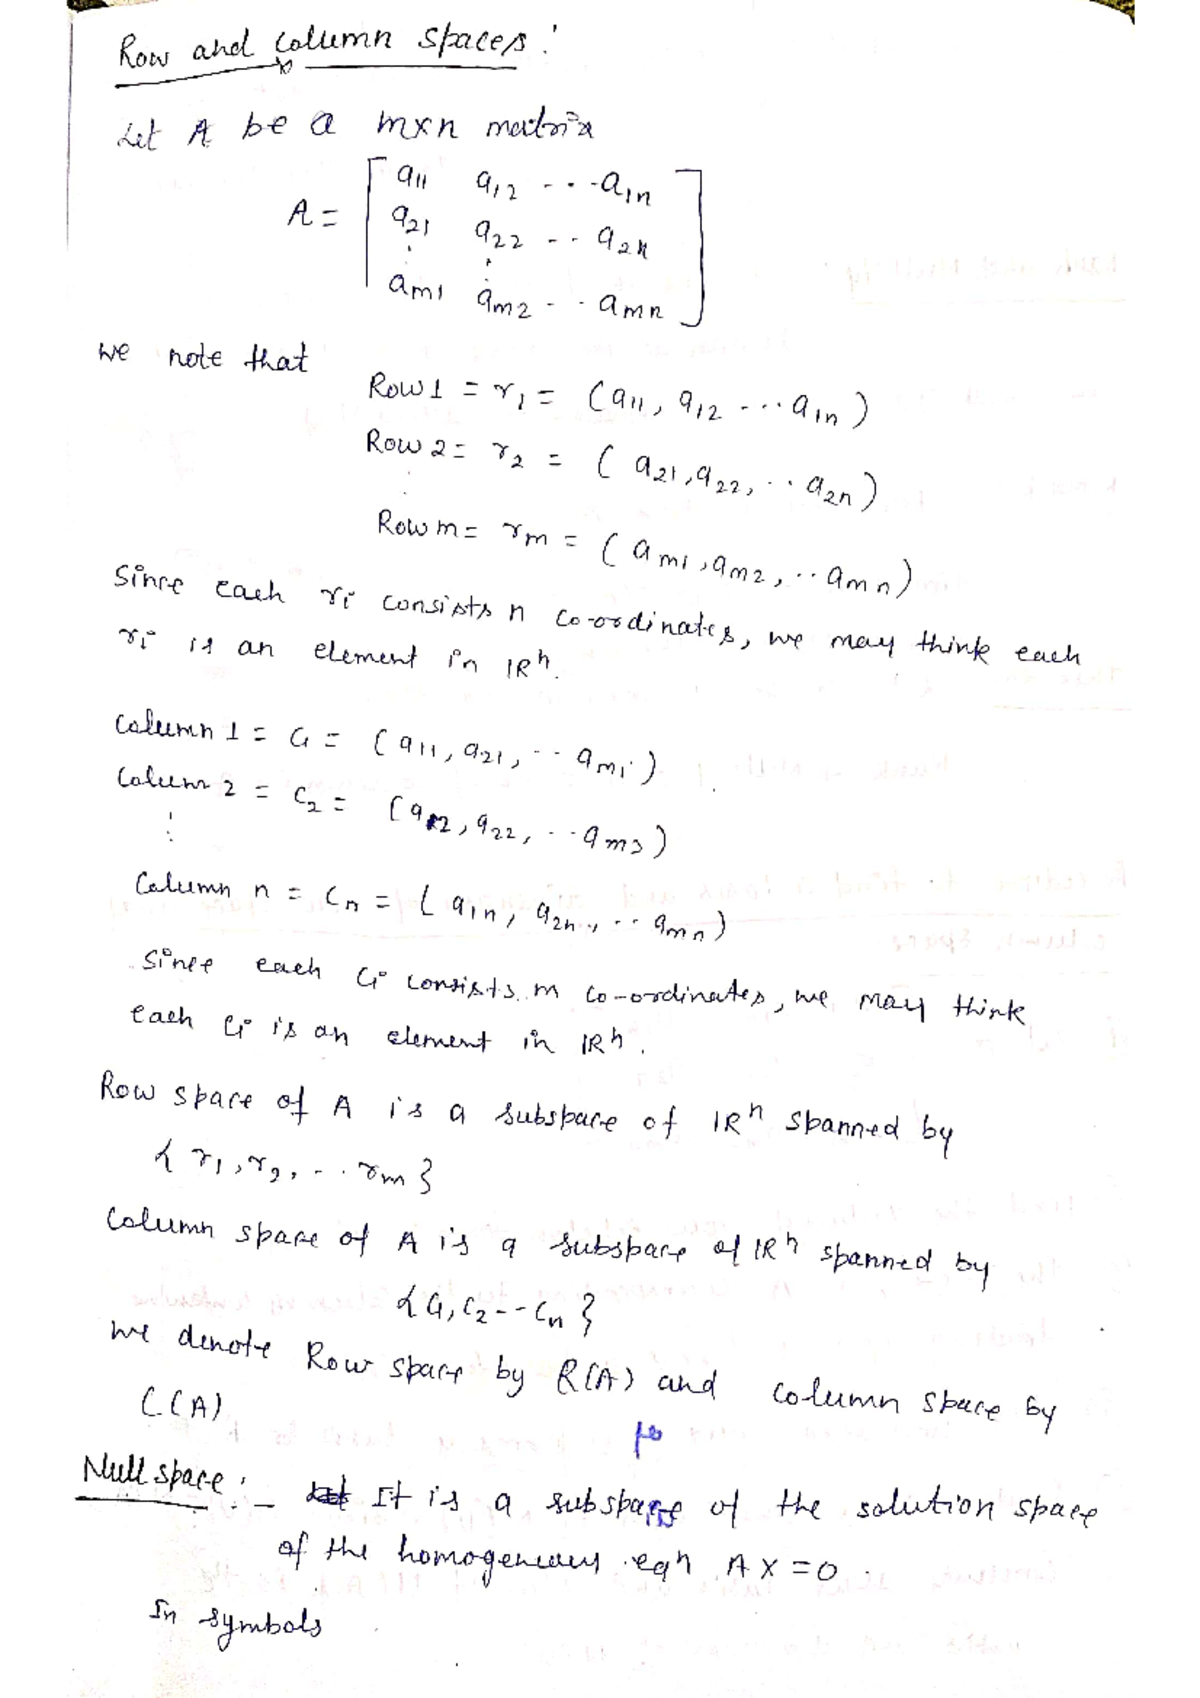 Row and Column spaces :
Let A be a m×n matrix
A = [ a11 a12 ... a1n
a21 a22 .. a2n
am1 am2 .. amn ]
we note that
Row 1 = r1 = (a11, a12 ... a1n)
Row 2 = r2 = (a21, a22, .. a2n)
Row m = rm = (am1, am2, .. amn)
Since each ri consists n co-ordinates, we may think each
ri is an element in IR^n.
Column 1 = C1 = (a11, a21, .. am1)
Column 2 = C2 = (a12, a22, ... am2)
⋮
Column n = Cn = (a1n, a2n, .. amn)
Since each Ci consists m co-ordinates, we may think
each Ci is an element in IR^n.
Row space of A is a subspace of IR^n spanned by
{ r1, r2, ... rm }
Column space of A is a subspace of IR^n spanned by
{ C1, C2 -- Cn }
we denote Row space by R(A) and column space by
C(A)
Null space :- It is a subspace of the solution space
of the homogeneous eqn AX = 0.
In symbols